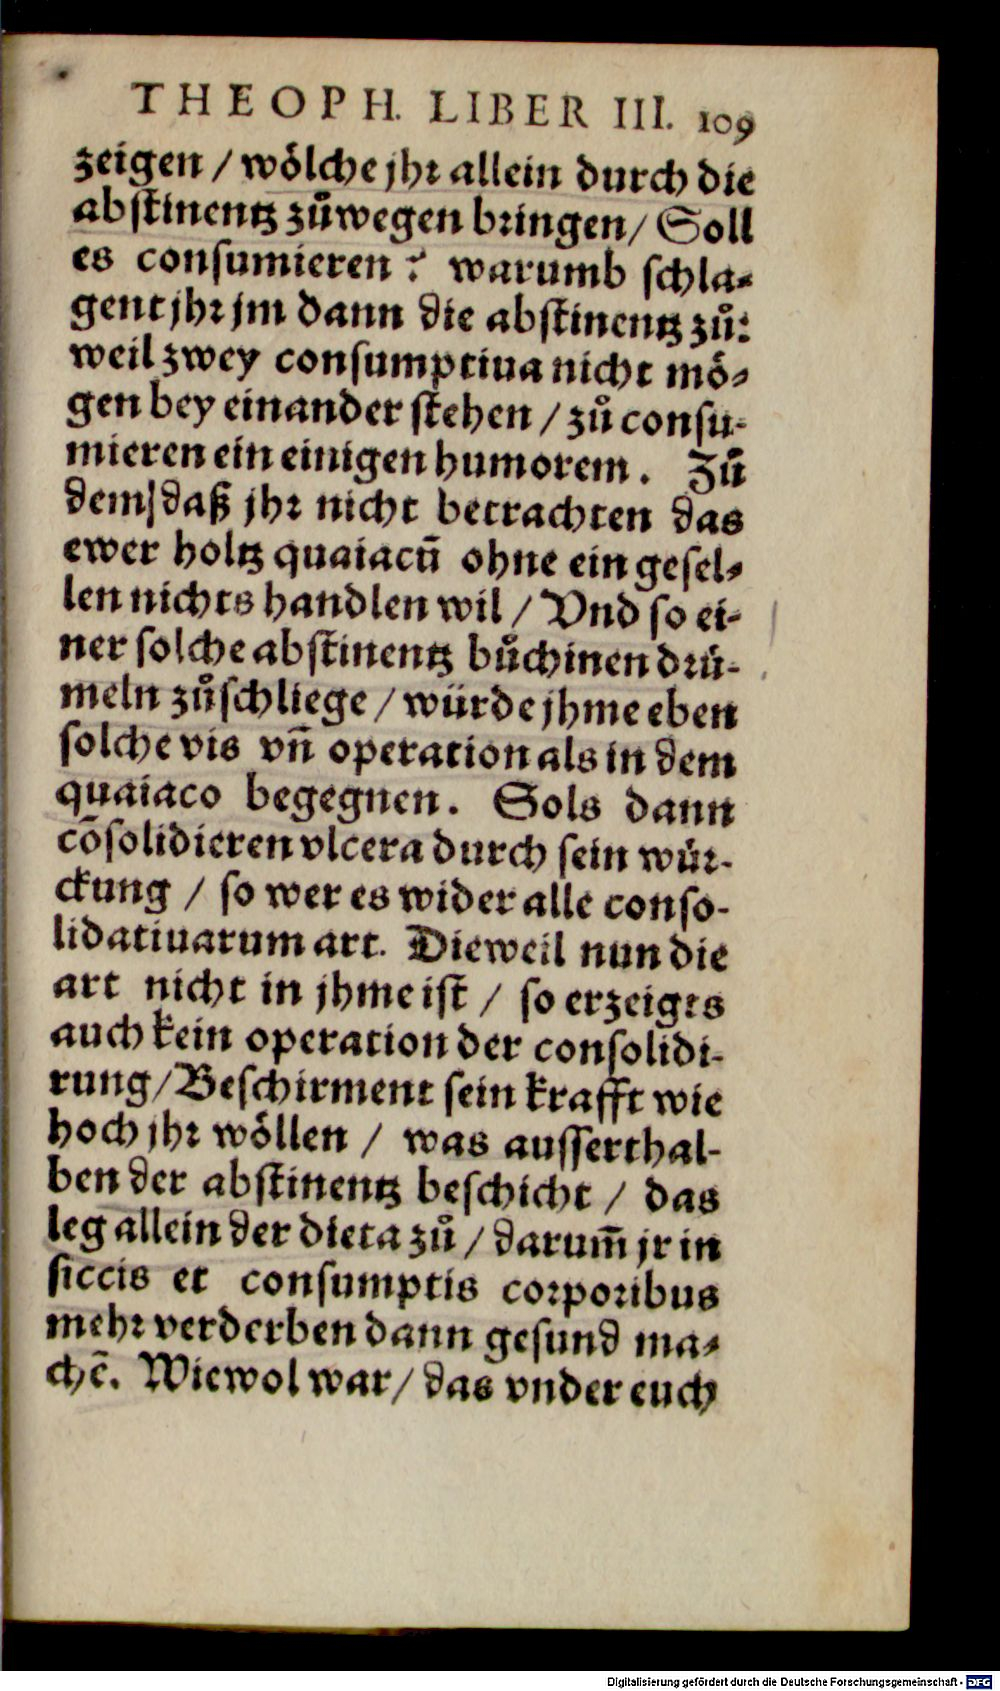 THEOPH. LIBER III. 109
zeigen / wölche jhr allein durch die
abstinentz zůwegen bringen / Soll
es consumieren? warumb schla-
gent jhr jm dann die abstinentz zů:
weil zwey consumptiua nicht mö-
gen bey einander stehen / zů consu-
mieren ein einigen humorem. Zů
dem / daß jhr nicht betrachten das
ewer holtz quaiacū ohne ein gesel-
len nichts handlen wil / Vnd so ei-
ner solche abstinentz bůchinen drü-
meln zůschliege / würde jhme eben
solche vis vñ operation als in dem
quaiaco begegnen. Sols dann
cōsolidieren vlcera durch sein wür-
ckung / so wer es wider alle conso-
lidatiuarum art. Dieweil nun die
art nicht in jhme ist / so erzeigts
auch kein operation der consolidi-
rung / Beschirment sein krafft wie
hoch jhr wöllen / was ausserthal-
ben der abstinentz beschicht / das
leg allein der dieta zů / darum̄ jr in
siccis et consumptis corporibus
mehr verderben dann gesund ma-
chē. Wiewol war / das vnder euch
Digitalisierung gefördert durch die Deutsche Forschungsgemeinschaft - DFG